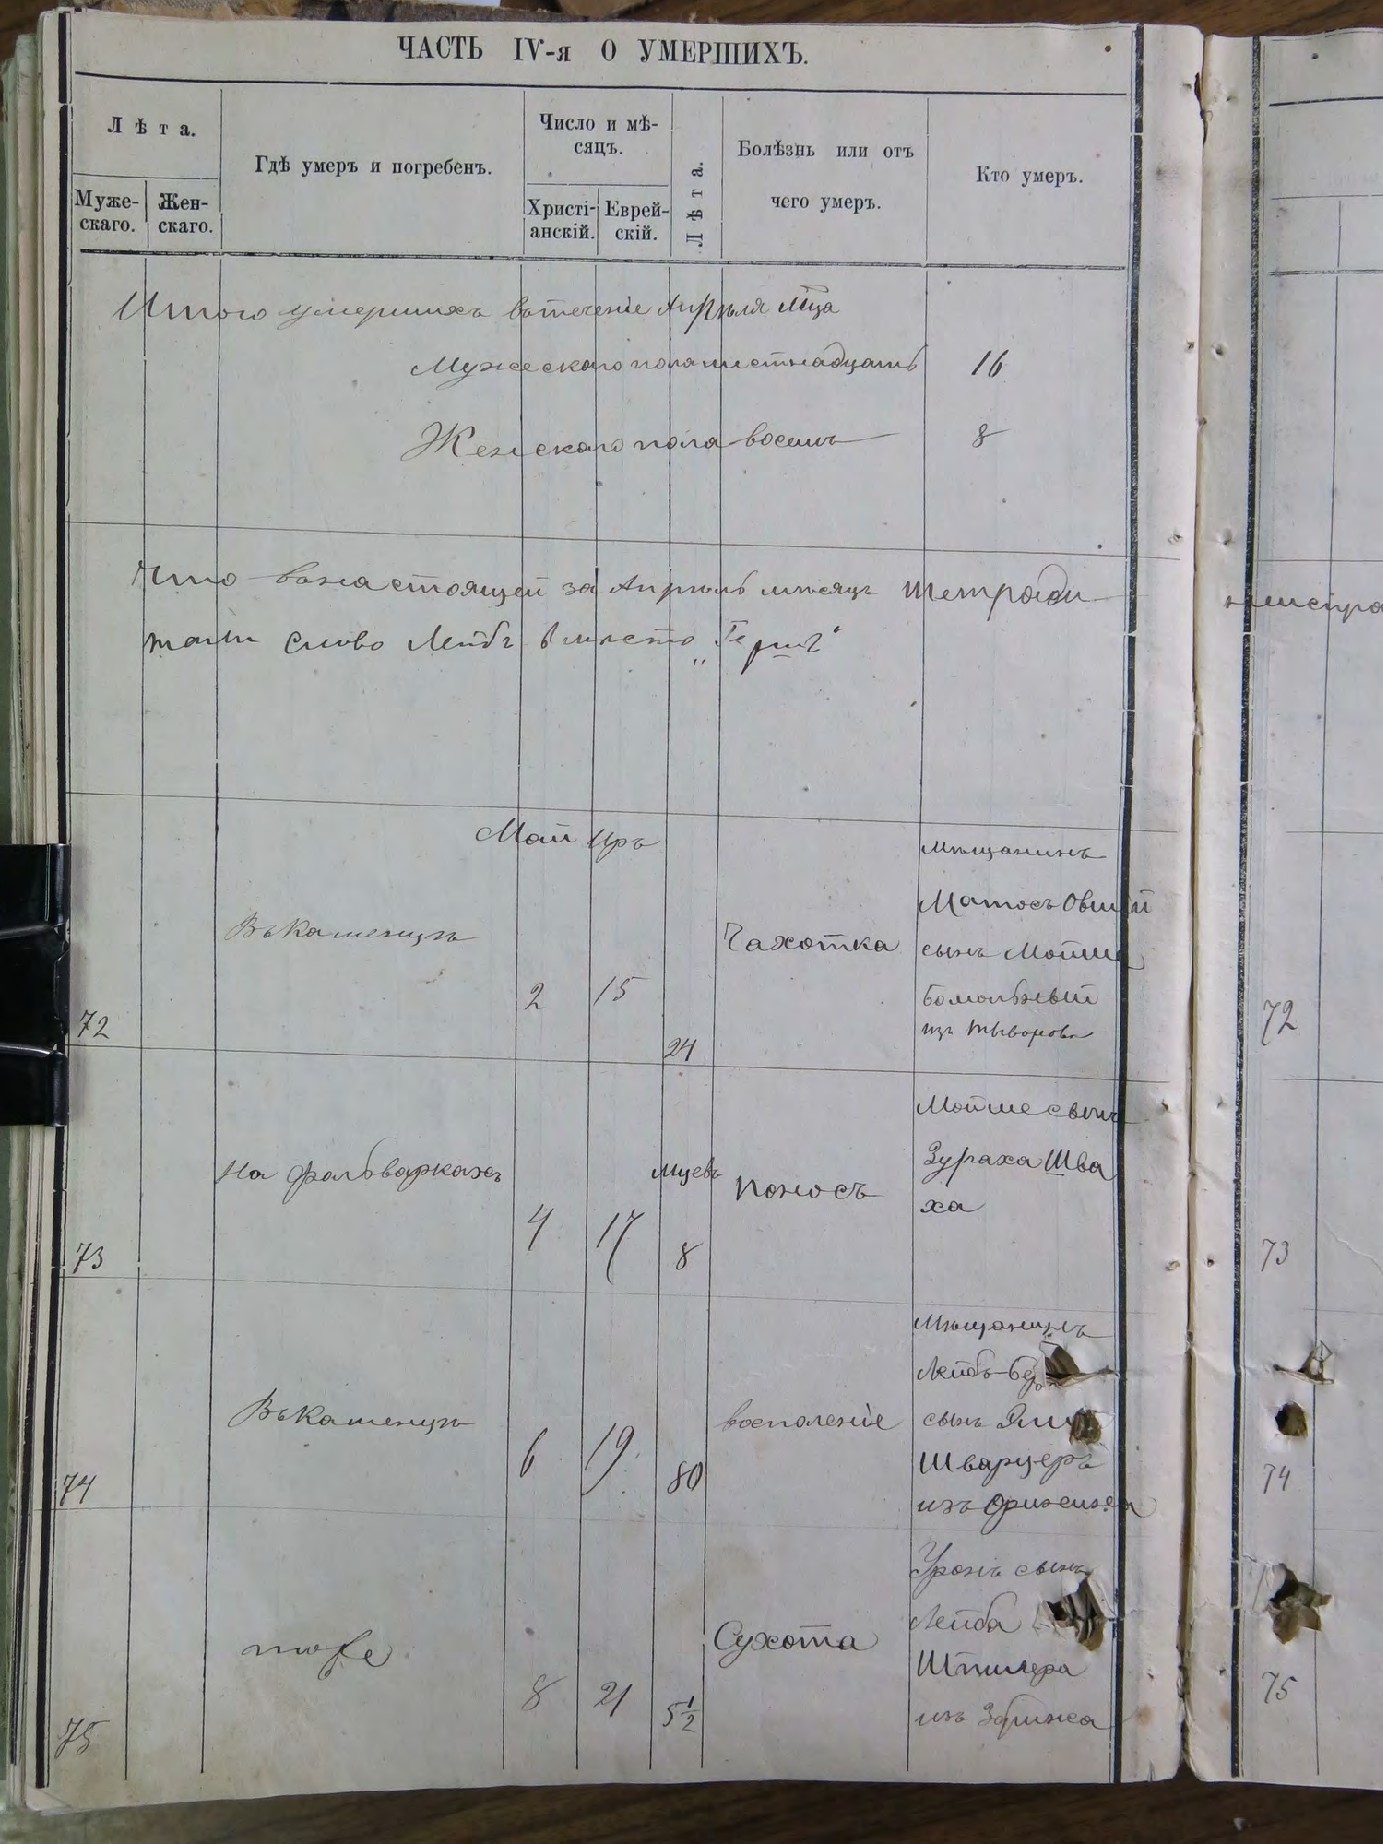 ЧАСТЬ IV-я О УМЕРШИХЪ.
Лѣта.
Муже-
скаго.
Жен-
скаго.
Гдѣ умеръ и погребенъ.
Число и мѣ-
сяцъ.
Христі-
анскій.
Еврей-
скій.
Лѣта.
Болѣзнь или отъ
чего умеръ.
Кто умеръ.
Итого умершихъ втеченіе Апрѣля Мца
Мужескаго пола шестнадцать 16
Женскаго пола восемь 8
Что въ настоящей за Апрѣль мѣсяцъ тетради
слово Лейбъ вмѣсто „Герш"
Май Иръ
72
Въ Каменцѣ
2
15
24
Чахотка
Мѣщанинъ
Матосъ Овшій
сынъ Мошка
изъ
72
73
На фольваркахъ
4
17
мцевъ
8
Поносъ
Мойше сынъ
Зураха Шва
ха
73
74
Въ Каменцѣ
6
19
80
восполеніе
Мѣщанинъ
Лейбъ-Бе
сынъ
Шварцеръ
изъ
74
75
тоже
8
21
5 1/2
Сухота
Уронъ сынъ
Лейба
Шпилера
изъ Збрижа
75